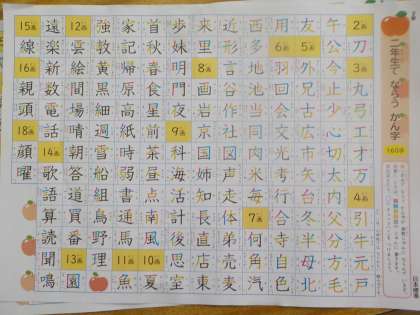 二年生で ならう かん字
160字
2画 刀 3画 丸 弓 工 才 万 4画 引 牛 元 戸
午 公 今 止 少 心 切 太 内 父 分 方 毛
友 5画 外 兄 古 広 市 矢 台 冬 半 母 北
用 6画 羽 回 会 交 光 考 行 合 寺 自 色
西 多 地 池 当 同 肉 米 毎 7画 何 角 汽
近 形 言 谷 作 社 図 声 走 体 弟 売 麦
来 里 8画 画 岩 京 国 姉 知 長 直 店 東
歩 妹 明 門 夜 9画 科 海 活 計 後 思 室
首 秋 春 食 星 前 茶 昼 点 南 風 10画 夏
家 記 帰 原 高 紙 時 弱 書 通 馬 11画 魚
強 教 黄 黒 細 週 雪 船 組 鳥 野 理
12画 雲 絵 間 場 晴 朝 答 道 買 番 13画 園
遠 楽 新 数 電 話 14画 歌 語 算 読 聞 鳴
15画 線 16画 親 頭 18画 顔 曜